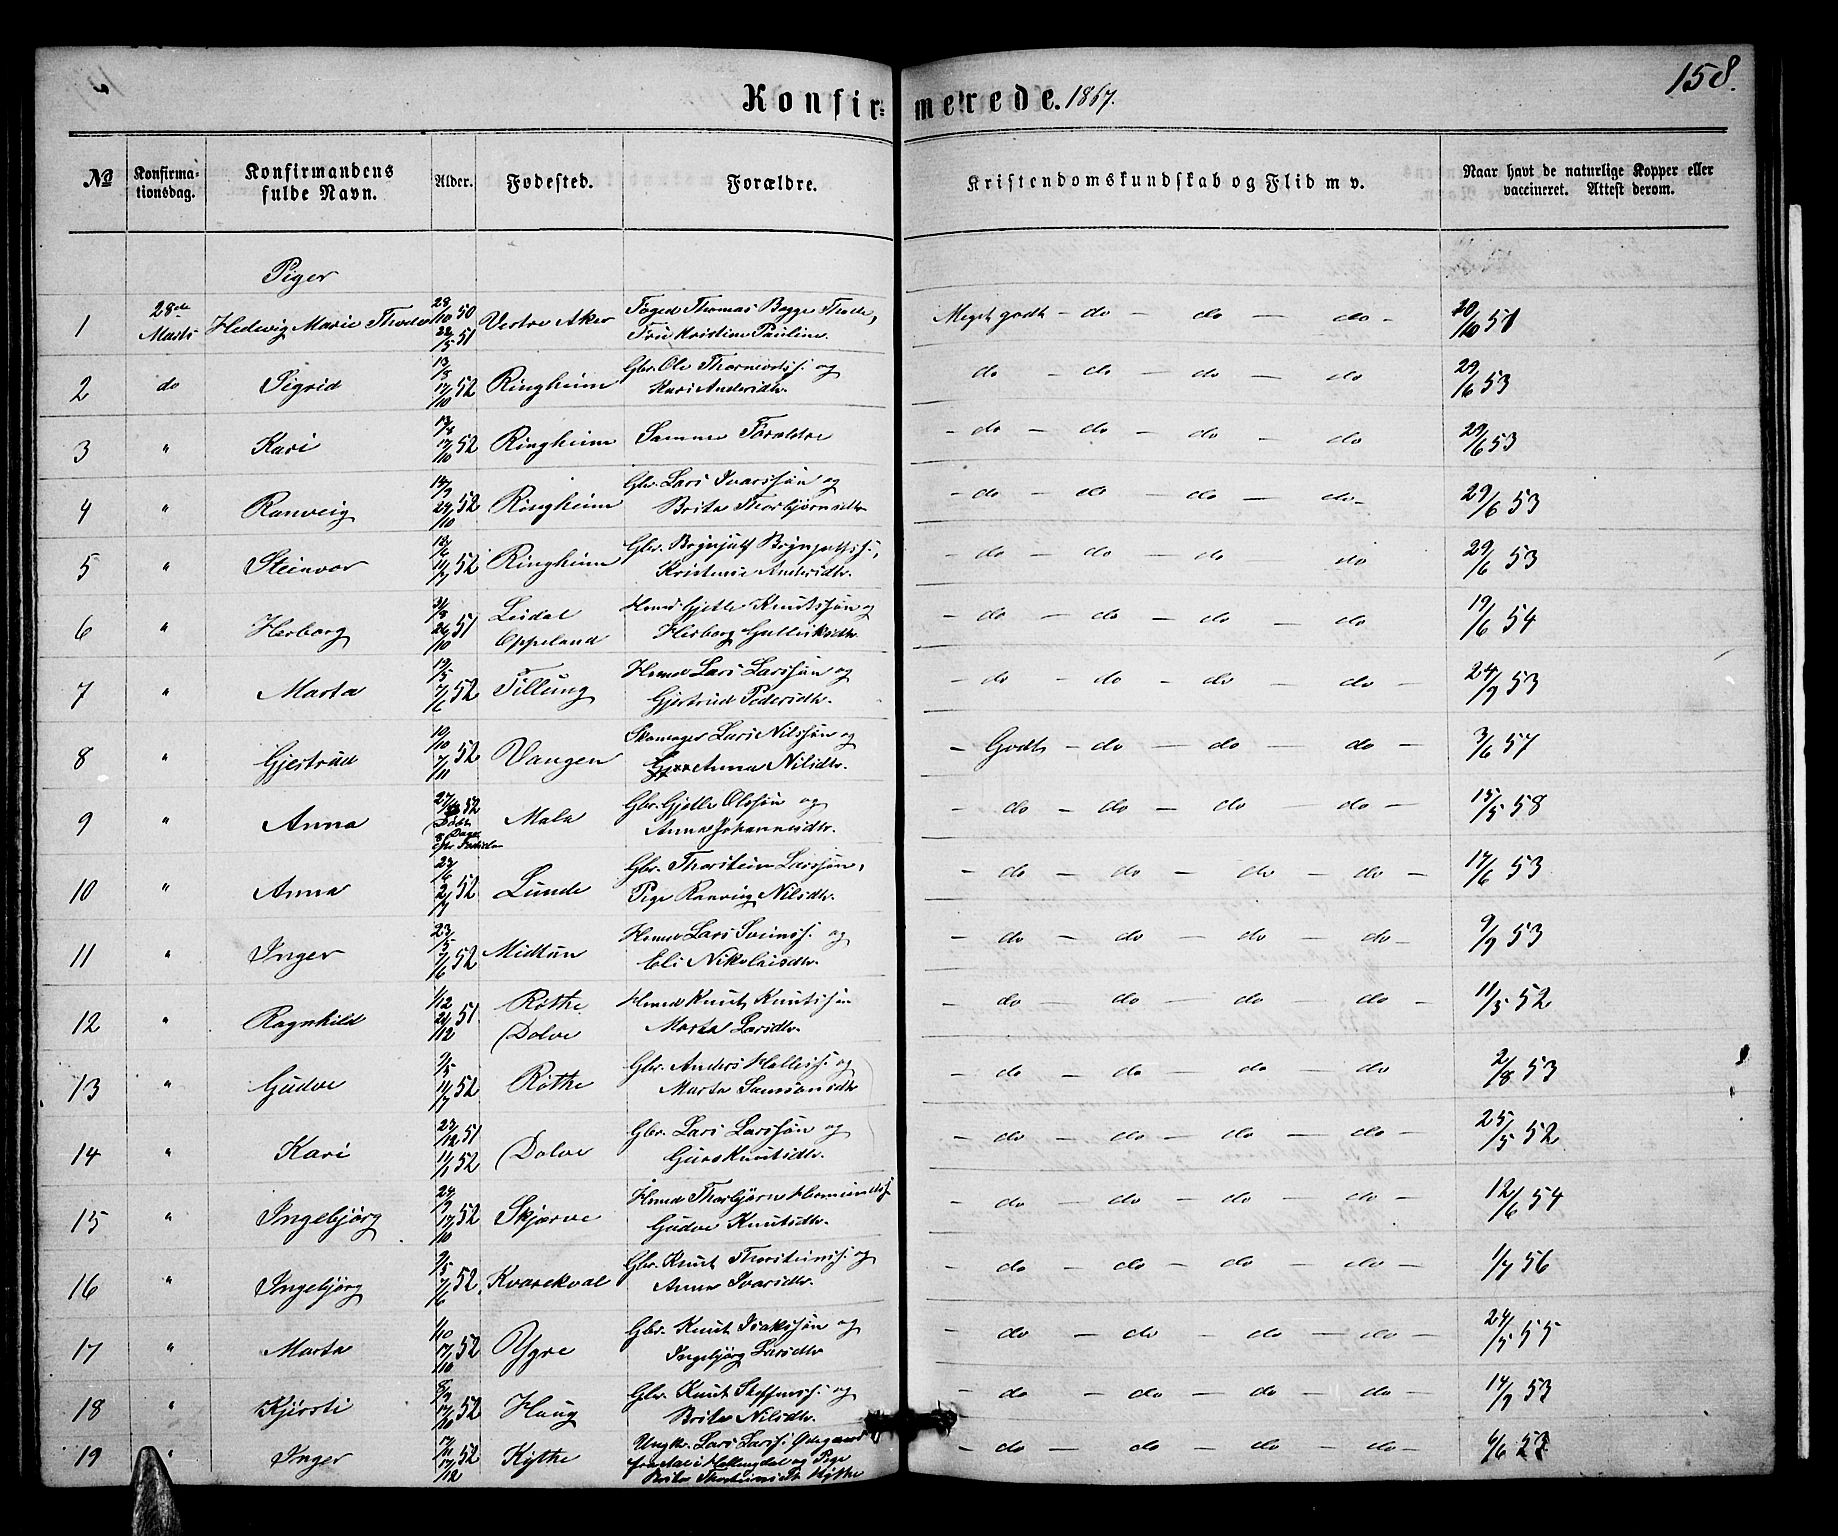 158.
Konfirmerede. 1867.
No
Konfirmationsdag.
Konfirmandens fulde Navn.
Alder.
Fødested.
Forældre.
Kristendomskundskab og Flid m v.
Naar havt de naturlige Kopper eller vaccineret. Attest derom.
Piger
1 28de Marts Hedevig Marie 28/10 50 22/5 51 Vestre Aker Foged Thomas Bagge Fru Kristiane Pauline. Meget godt - do - do - do - 20/10 51
2 do Sigrid 13/3 17/10 52 Ringheim Gbr. Ole og Kari Andersdtr. do - do - do - do 29/6 53
3 " Kari 17/10 52 Ringheim Samme Forældre - do - do - do - do 29/6 53
4 " Ranveig 24/10 52 Ringheim Gbr. Lars Ivarssøn og Brita Thorbjørnsdtr. - do - do - do - do - 29/6 53
5 " Steinvor 52 Ringheim Gbr. Brynjulf Kristense Andersdtr. - do - do - do - do 29/6 53
6 " Herborg 26/10 51 Lisdal Oppeland Hmd Gjetle Knutssøn og Herborg Gulleiksdtr. - do - do - do - do 19/6 54
7 " Marta 19/5 7/6 52 Tillung Hmd Lars Larssøn og Gjertrud Pedersdtr. - do - do - do - do - 24/9 53
8 " Gjertrud 19/10 7/11 52 Vangen Skomager Lars Nilssøn og Anna Nilsdtr. - Godt - do - do - do - 3/6 57
9 " Anna 52 Mala Gbr. Gjetle Olssøn og Anna Johannesdtr. - do - do - do - do - 15/5 58
10 " Anna 27/6 2/7 52 Lunde Gbr. Thorstein Larssøn, Pige Ranveig Nilsdtr. - do - do - do - do - 17/6 53
11 " Inger 23/5 7/6 52 Midtun Hmd Lars Sveinss. og Eli Nikolaisdtr. - do - do - do - do - 9/9 53
12 " Ragnhild 1/12 21/12 51 Røthe Dolve Hmd Knut Knutssøn Marta Larsdtr. - do - do - do - do 11/5 52
13 " Gudve 9/5 11/7 52 Røthe Gbr. Anders og Marta Samsonsdtr - do - do - do - do 2/8 53
14 " Kari 23/12 51 11/1 52 Dolve Gbr. Lars Larssøn og Guro Knutsdtr. - do - do - do - do - 25/5 52
15 " Ingebjørg 24/9 17/10 52 Skjerve Hmd Thorbjørn Gudve Knutsdtr. - do - do - do - do - 12/6 54
16 " Ingebjørg 9/5 7/6 52 Kvarekval Gbr. Knut Thorsteinss. og Anna Ivarsdtr. - do - do - do - do - 1/7 56
17 " Marta 1/10 17/10 52 Ygre Gbr. Knut Isakssøn og Ingebjørg Larsdtr - do - do - do - do - 24/5 55
18 " Kjersti 17/10 52 Haug Gbr. Knut Steffenss. og Brita Nilsdtr. - do - do - do - do - 14/9 53
19 " Inger 17/12 52 Kythe Ungk. Lars Larss. og Pige Brita Kythe - do - do - do - do - 6/6